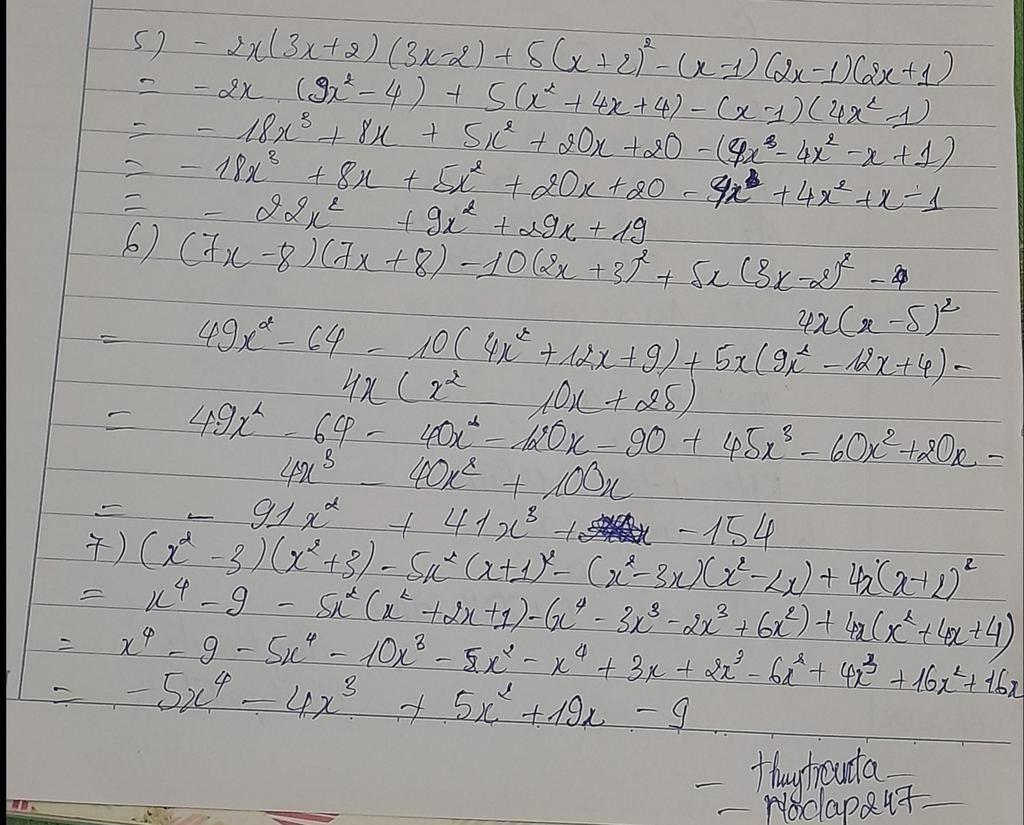 5) - 2x(3x+2)(3x-2) + 5(x+2)² - (x-1)(2x-1)(2x+1)
= -2x (9x² - 4) + 5(x² + 4x + 4) - (x-1)(4x² - 1)
= - 18x³ + 8x + 5x² + 20x + 20 - (4x³ - 4x² - x + 1)
= - 18x³ + 8x + 5x² + 20x + 20 - 4x³ + 4x² + x - 1
= - 22x² + 9x² + 29x + 19
6) (7x - 8)(7x + 8) - 10(2x + 3)² + 5x (3x - 2)² -
4x(x - 5)²
= 49x² - 64 - 10(4x² + 12x + 9) + 5x(9x² - 12x + 4) -
4x (x² 10x + 25)
= 49x² - 64 - 40x² - 120x - 90 + 45x³ - 60x² + 20x -
4x³ - 40x² + 100x
= - 91x² + 41x³ + - 154
7) (x² - 3)(x² + 3) - 5x²(x+1)² - (x² - 3x)(x² - 2x) + 4x(x+2)²
= x⁴ - 9 - 5x²(x² + 2x + 1) - (x⁴ - 3x³ - 2x³ + 6x²) + 4x(x² + 4x + 4)
= x⁴ - 9 - 5x⁴ - 10x³ - 5x² - x⁴ + 3x + 2x³ - 6x² + 4x³ + 16x² + 16x
= - 5x⁴ - 4x³ + 5x² + 19x - 9